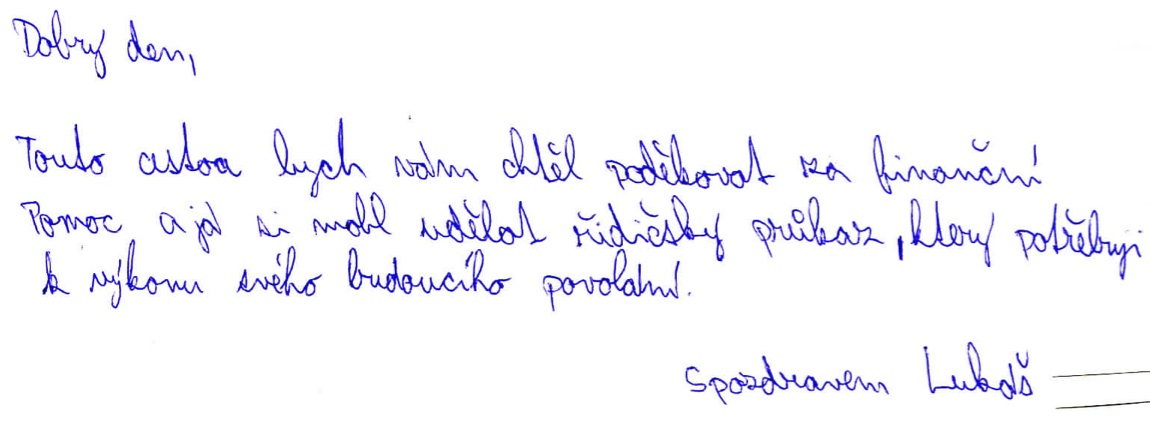 Dobrý den,
Touto cestou bych vám chtěl poděkovat za finanční
Pomoc, a já si mohl udělat řidičský průkaz, který potřebuji
k výkonu svého budoucího povolání.
S pozdravem Lukáš